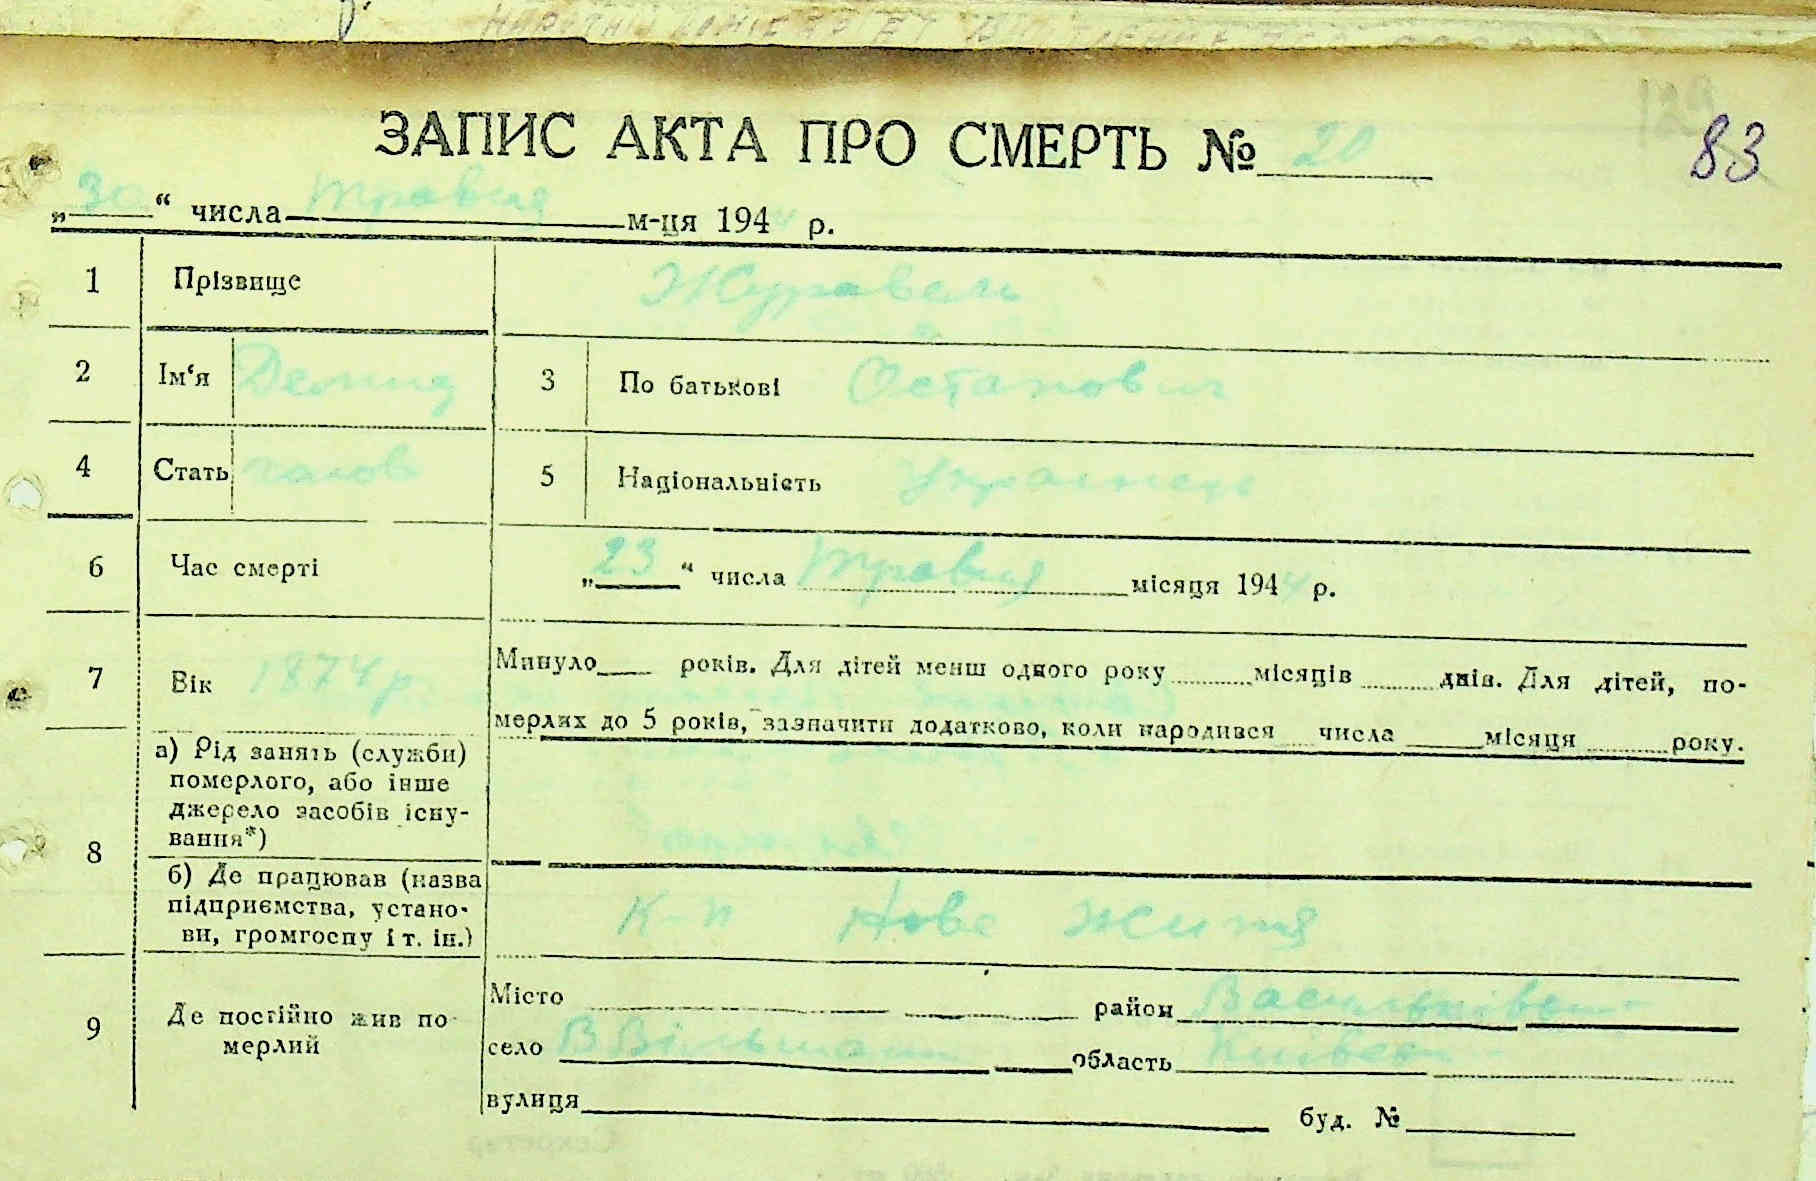 ЗАПИС АКТА ПРО СМЕРТЬ № 20
83
„30“ числа травня м-ця 1944 р.
1 Прізвище Журавель
2 Ім‘я Демид 3 По батькові Остапович
4 Стать чолов 5 Національність Українець
6 Час смерті „23“ числа травня місяця 1944 р.
7 Вік 1874 р Минуло____ років. Для дітей менш одного року ........ місяців ........ днів. Для дітей, по-
мерлих до 5 років, зазначити додатково, коли народився ___ числа ____ місяця ........ року.
8 а) Рід занять (служби)
померлого, або інше
джерело засобів існу-
вання*)
б) Де працював (назва
підприємства, устано-
ви, громгоспу і т. ін.)
К-п Нове життя
9 Де постійно жив по-
мерлий
Місто район Васильківськ
село В Вільшан область Київськ
вулиця буд. №